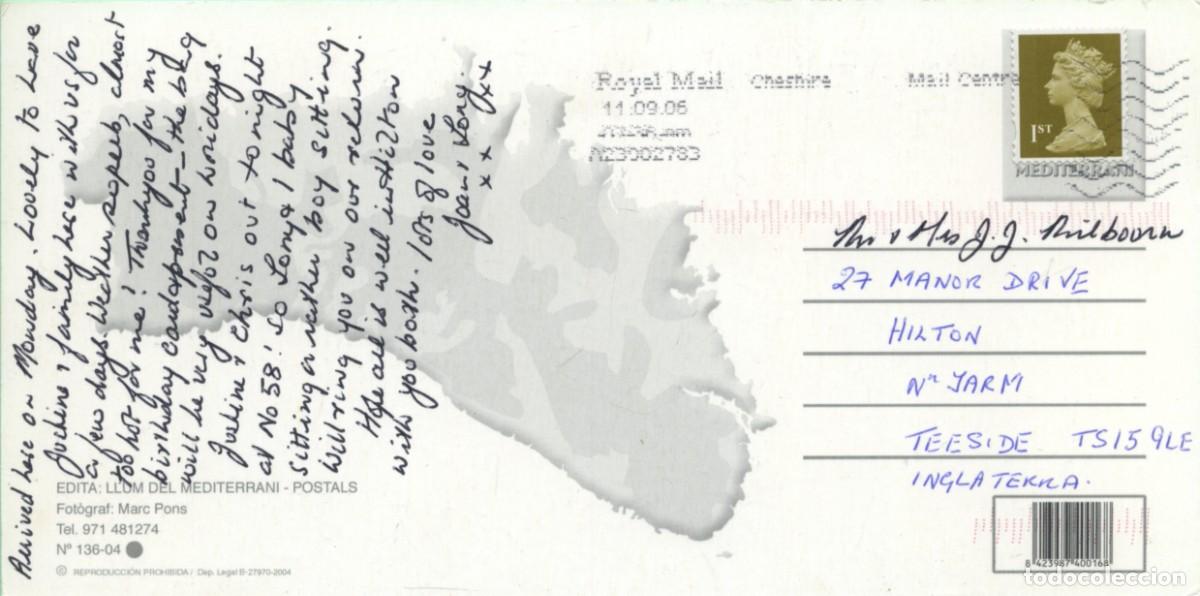 Arrived here on Monday. Lovely to have
Justine & family here with us for
a few days. Weather superb, almost
too hot for me! Thankyou for my
birthday card & present - the bag
will be very useful on holidays.
Justine & Chris out tonight
at No 58! so Tony & I baby
sitting or rather boy sitting.
Will ring you on our return.
Hope all is well in Hilton
with you both. lots of love
Joan & Tony.
x x x x
EDITA: LLUM DEL MEDITERRANI - POSTALS
Fotògraf: Marc Pons
Tel. 971 481274
Nº 136-04
© REPRODUCCIÓN PROHIBIDA / Dep. Legal B-27970-2004
Royal Mail Cheshire Mail Centre
11.09.06
A23002783
1ST
MEDITERRANI
Mr & Mrs J.J. Milbourn
27 MANOR DRIVE
HILTON
Nr YARM
TEESIDE TS15 9LE
INGLATERRA.
8 423987 400168
todocoleccion